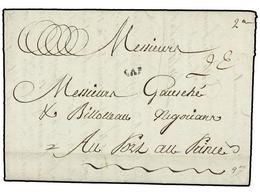 Messieurs
CAP
Messieurs Gausché
& Billoteau Negocians
Au Port au Prince